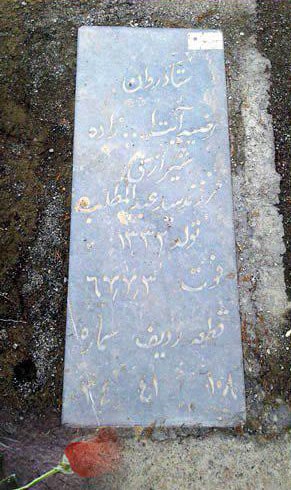 شادروان
رضیه آیت ا... زاده
شیرازی
فرزند سید عبدالمطلب
تولد ۱۳۳۲
فوت
قطعه ردیف شماره
۱۰۸ ۴۱ ۳۴